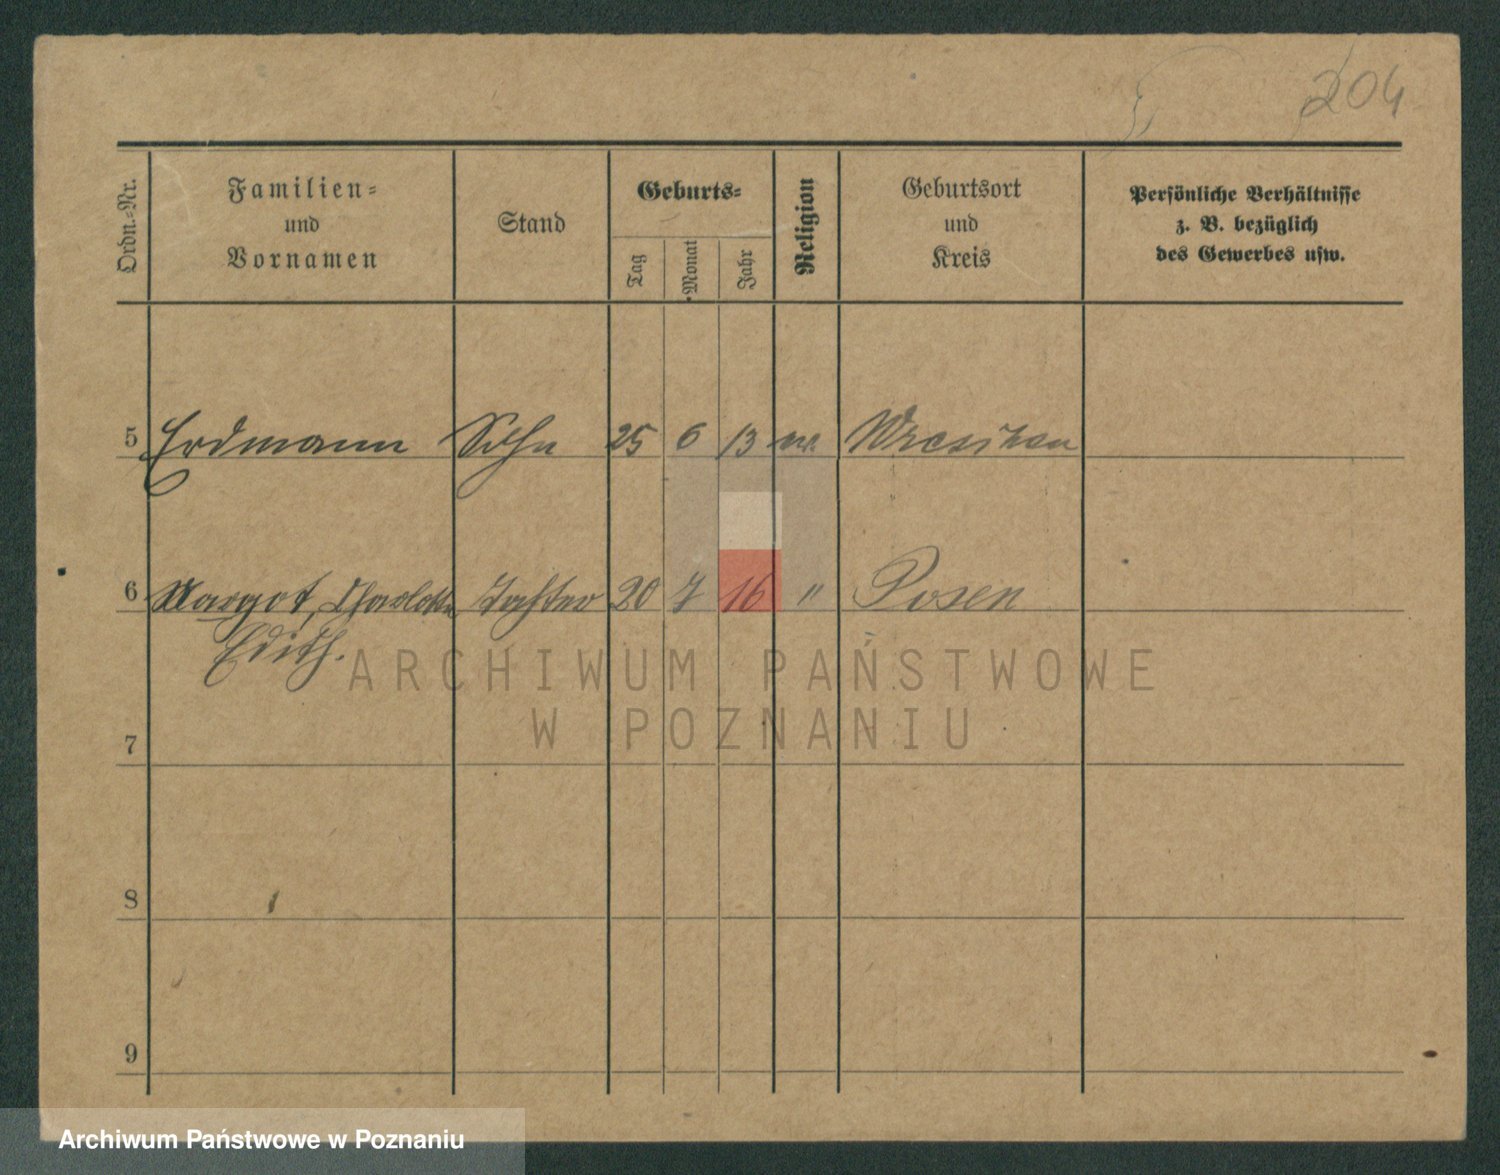 204
Ordn.-Nr.
Familien-
und
Vornamen
Stand
Geburts-
Tag
Monat
Jahr
Religion
Geburtsort
und
Kreis
Persönliche Verhältnisse
z. B. bezüglich
des Gewerbes usw.
5 Erdmann Sohn 25 6 13
6 Margot, Charlotte Tochter 20 7 16 " Posen
Edith.
7
8
9
ARCHIWUM PAŃSTWOWE
W POZNANIU
Archiwum Państwowe w Poznaniu